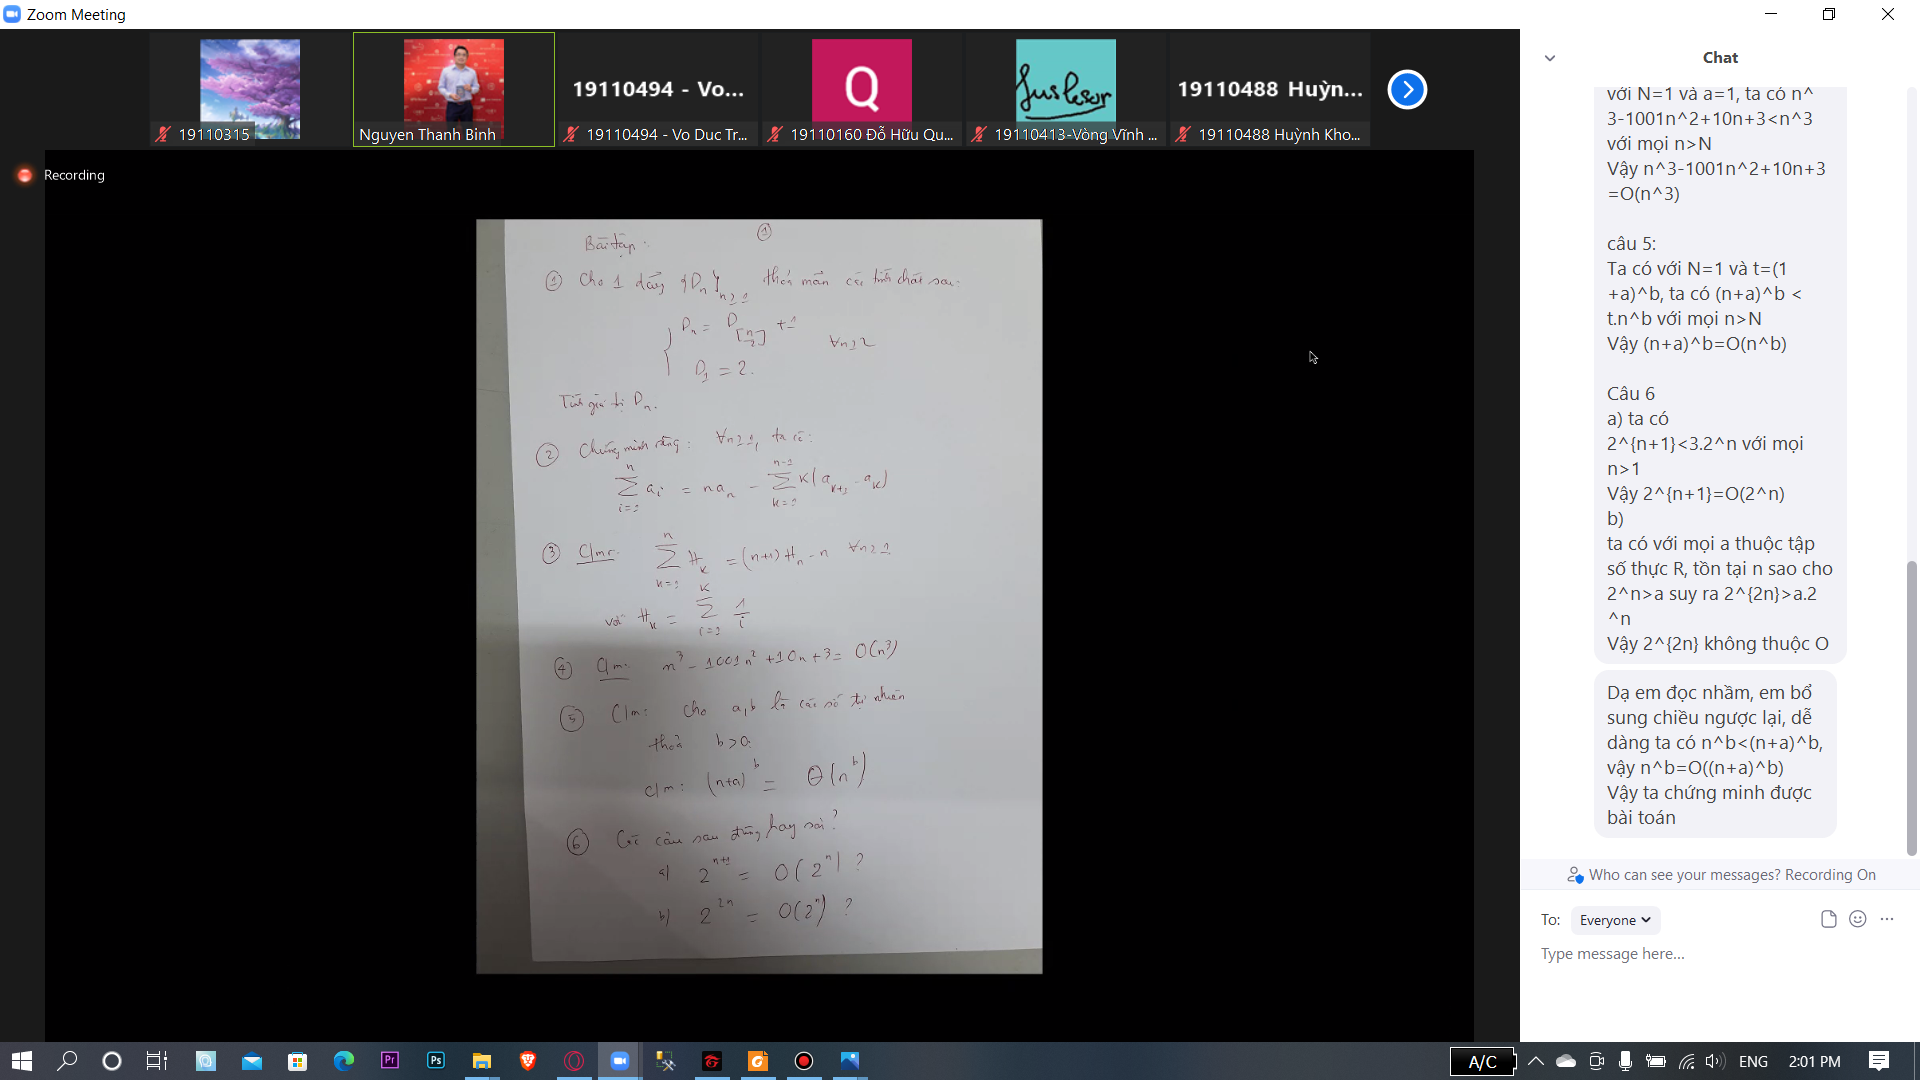 Zoom Meeting
19110494 - Vo...
Q
19110488 Huỳn...
19110315
Nguyen Thanh Binh
19110494 - Vo Duc Tr...
19110160 Đỗ Hữu Qu...
19110413-Vòng Vĩnh ...
19110488 Huỳnh Kho...
Recording
①
Bài tập:
① Cho 1 dãy {D_n}_{n≥1} thỏa mãn các tính chất sau:
D_n = D_{[n/2]} + 1 ∀n≥2
D_1 = 2.
Tính giá trị D_n.
② Chứng minh rằng: ∀n≥1, ta có:
∑_{i=1}^{n} a_i = na_n - ∑_{k=1}^{n-1} k(a_{k+1} - a_k)
③ C/mr. ∑_{k=1}^{n} H_k = (n+1)H_n - n ∀n≥1
với H_k = ∑_{i=1}^{k} 1/i
④ C/m: n^3 - 1001n^2 + 10n + 3 = O(n^3)
⑤ C/m: Cho a,b là các số tự nhiên
thoả b>0.
C/m: (n+a)^b = Θ(n^b)
⑥ Các câu sau đúng hay sai?
a) 2^{n+1} = O(2^n) ?
b) 2^{2n} = O(2^n) ?
Chat
với N=1 và a=1, ta có n^
3-1001n^2+10n+3<n^3
với mọi n>N
Vậy n^3-1001n^2+10n+3
=O(n^3)
câu 5:
Ta có với N=1 và t=(1
+a)^b, ta có (n+a)^b <
t.n^b với mọi n>N
Vậy (n+a)^b=O(n^b)
Câu 6
a) ta có
2^{n+1}<3.2^n với mọi
n>1
Vậy 2^{n+1}=O(2^n)
b)
ta có với mọi a thuộc tập
số thực R, tồn tại n sao cho
2^n>a suy ra 2^{2n}>a.2
^n
Vậy 2^{2n} không thuộc O
Dạ em đọc nhầm, em bổ
sung chiều ngược lại, dễ
dàng ta có n^b<(n+a)^b,
vậy n^b=O((n+a)^b)
Vậy ta chứng minh được
bài toán
Who can see your messages? Recording On
To: Everyone
Type message here...
Pr
Ps
A/C
ENG
2:01 PM